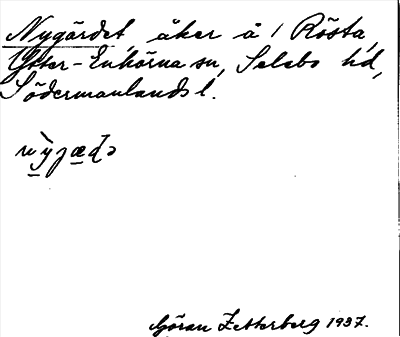 Nygärdet, åker å 1 Rösta,
Ytter-Enhörna sn, Selebo hd,
Södermanlands l.
Göran Zetterberg 1937.